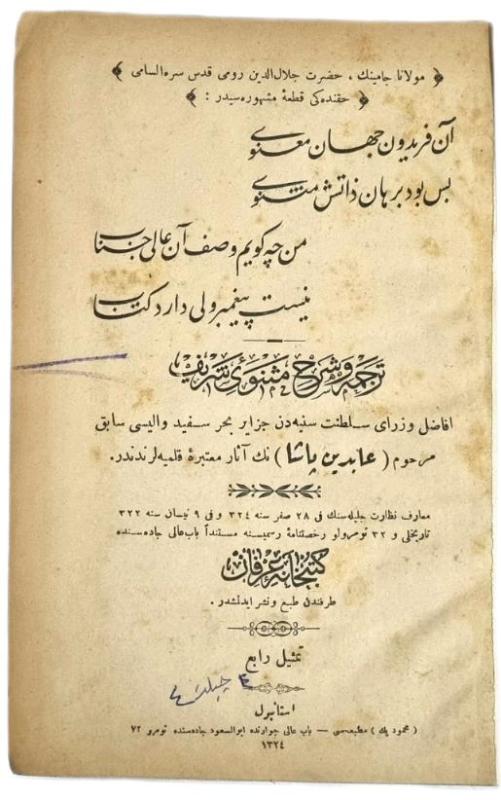 ﴿ مولانا جامينك ، حضرت جلال‌الدين رومى قدس سره السامى ﴾
﴿ حقنده‌كى قطعهٔ مشهوره‌سيدر : ﴾
آن فريدون جهان معنوى
بس بود برهان ذاتش مثنوى
من چه كويم وصف آن عالى جناب
نيست پيغمبر ولى دارد كتاب
ترجمه و شرح مثنوئ شريف
افاضل وزراى سلطنت سنيه‌دن جزاير بحر سفيد واليسى سابق
مرحوم ( عابدين پاشا ) نك آثار معتبرهٔ قلميه‌لرندندر.
معارف نظارت جليله‌سنك فى ٢٨ صفر سنه ٣٢٤ و فى ٩ نيسان سنه ٣٢٢
تاريخلى و ٣٢ نومرولو رخصتنامهٔ رسميسنه مستنداً باب عالى جاده‌سنده
كتبخانهٔ عرفان
طرفندن طبع و نشر ايدلشدر .
تمثيل رابع
استانبول
( محمود بك ) مطبعه‌سى — باب عالى جوارنده ابوالسعود جاده‌سنده نومرو ٧٢
١٣٢٤